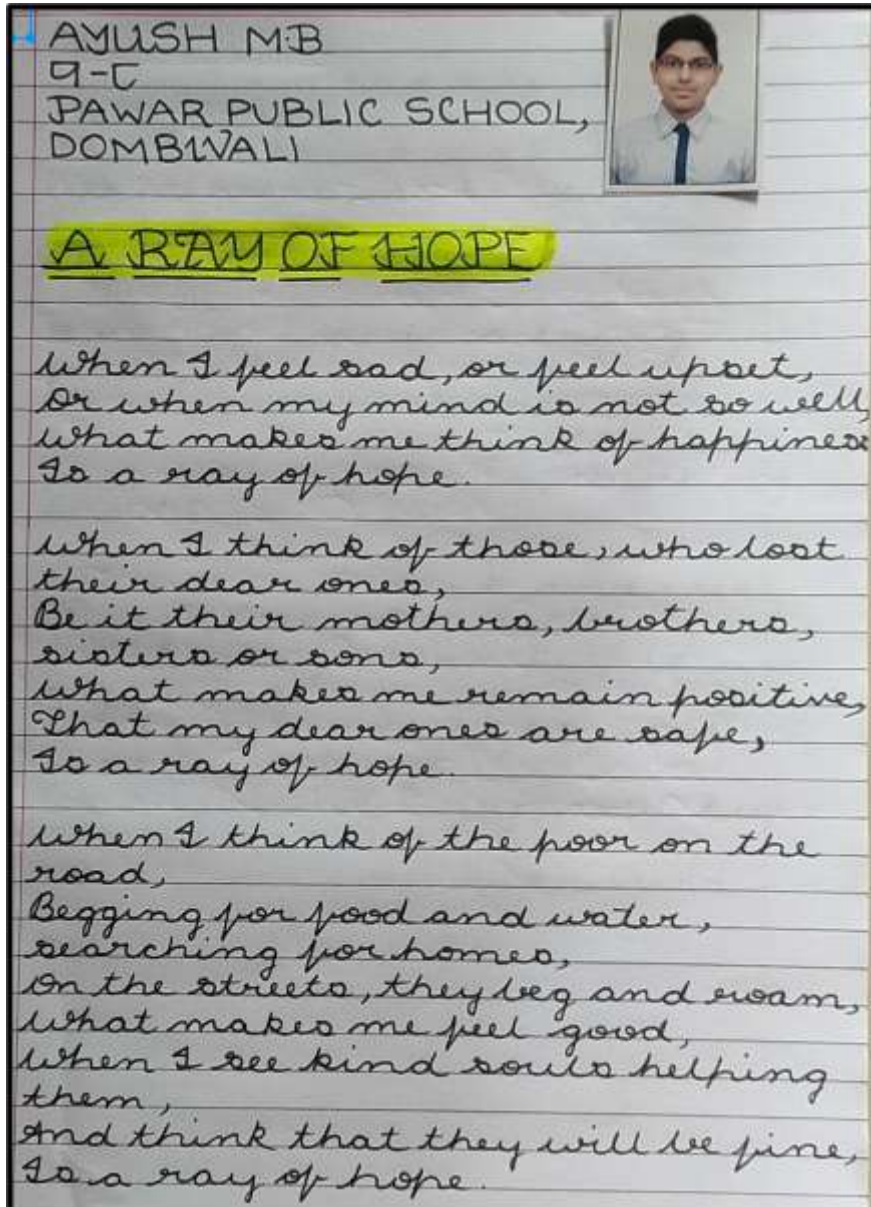 AYUSH M.B
9-C
PAWAR PUBLIC SCHOOL,
DOMBIVALI
A RAY OF HOPE
When I feel sad, or feel upset,
Or when my mind is not so well,
What makes me think of happiness
Is a ray of hope.
When I think of those, who lost
their dear ones,
Be it their mothers, brothers,
sisters or sons,
What makes me remain positive,
That my dear ones are safe,
Is a ray of hope.
When I think of the poor on the
road,
Begging for food and water,
searching for homes,
On the streets, they beg and roam,
What makes me feel good,
When I see kind souls helping
them,
And think that they will be fine,
Is a ray of hope.